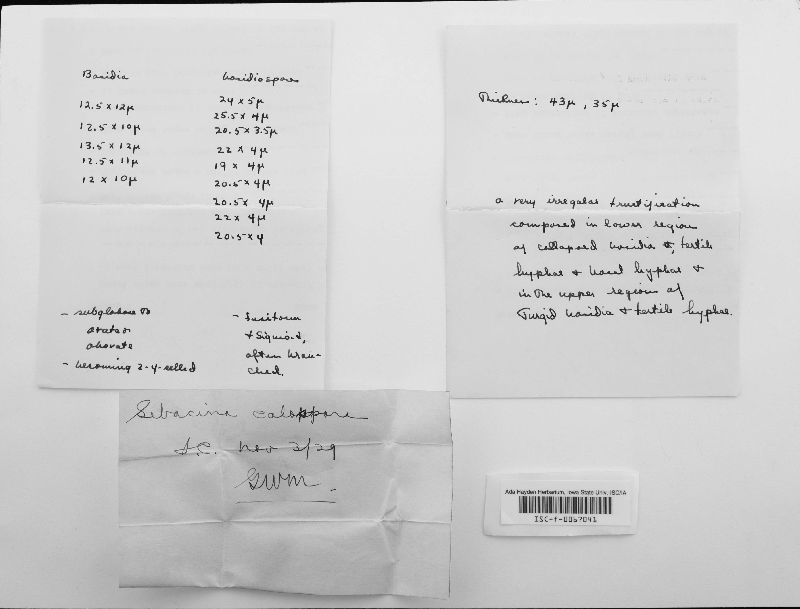 Basidia
12.5 x 12µ
12.5 x 10µ
13.5 x 12µ
12.5 x 11µ
12 x 10µ
basidiospores
24 x 5µ
25.5 x 4µ
20.5 x 3.5µ
22 x 4µ
19 x 4µ
20.5 x 4µ
20.5 x 4µ
22 x 4µ
20.5 x 4
- subglobose to
ovate or
obovate
- becoming 2-4-celled
- fusiform
+ sigmoid,
often bran-
ched.
Thickness: 43µ, 35µ
a very irregular fructification
composed in lower region
of collapsed basidia +, fertile
hyphae + basal hyphae +
in the upper region of
turgid basidia + fertile hyphae.
Sebacina calospora
I.C. Nov 2/29
GWM.
Ada Hayden Herbarium, Iowa State Univ. ISC/IA
ISC-f-0067041